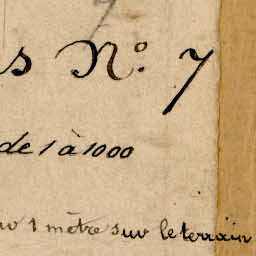 7
s N.º 7
de 1 à 1000
1 mètre sur le terrain